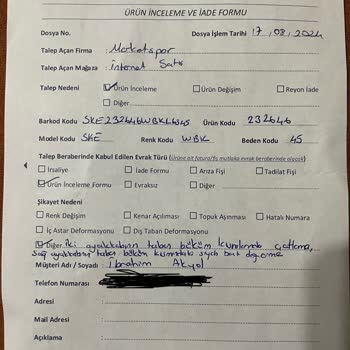 ÜRÜN İNCELEME VE İADE FORMU
Dosya No. Dosya İşlem Tarihi 17, 08, 2024
Talep Açan Firma : Marketspor
Talep Açan Mağaza : İnternet Satış
Talep Nedeni Ürün İnceleme Ürün Değişim Reyon İade
Diğer
Barkod Kodu SKE232646WBKL45 Ürün Kodu 232646
Model Kodu SKE Renk Kodu WBK Beden Kodu 45
Talep Beraberinde Kabul Edilen Evrak Türü (Ürüne ait fatura/fiş mutlaka evrak beraberinde olacak)
İrsaliye İade Formu Arıza Fişi Tadilat Fişi
Ürün İnceleme Formu Evraksız Diğer
Şikayet Nedeni
Renk Değişim Kenar Açılması Topuk Aşınması Hatalı Numara
İç Astar Deformasyonu Dış Taban Deformasyonu
Diğer İki ayakkabının taban büküm kısımlarında çatlama,
Sağ ayakkabının taban büküm kısmındaki
Müşteri Adı / Soyadı : İbrahim Akyol
Telefon Numarası
Adresi :
Mail Adresi :
Açıklama :